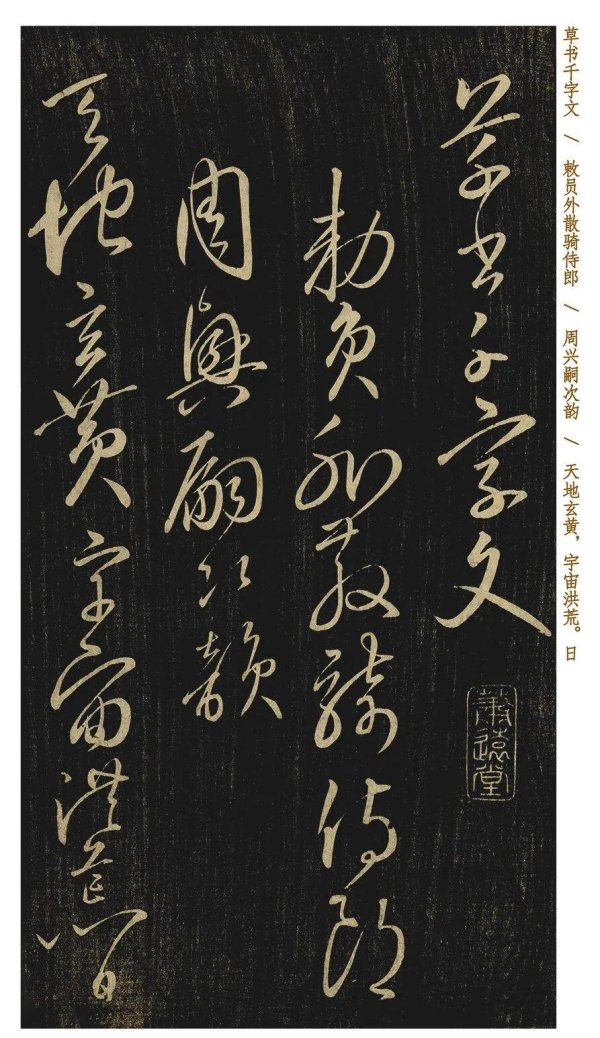 草书千字文 / 敕员外散骑侍郎 / 周兴嗣次韵 / 天地玄黄，宇宙洪荒。日
草書千字文
萧遠堂
勅負外散騎侍郎
周興嗣次韻
天地玄黄宇宙洪荒日